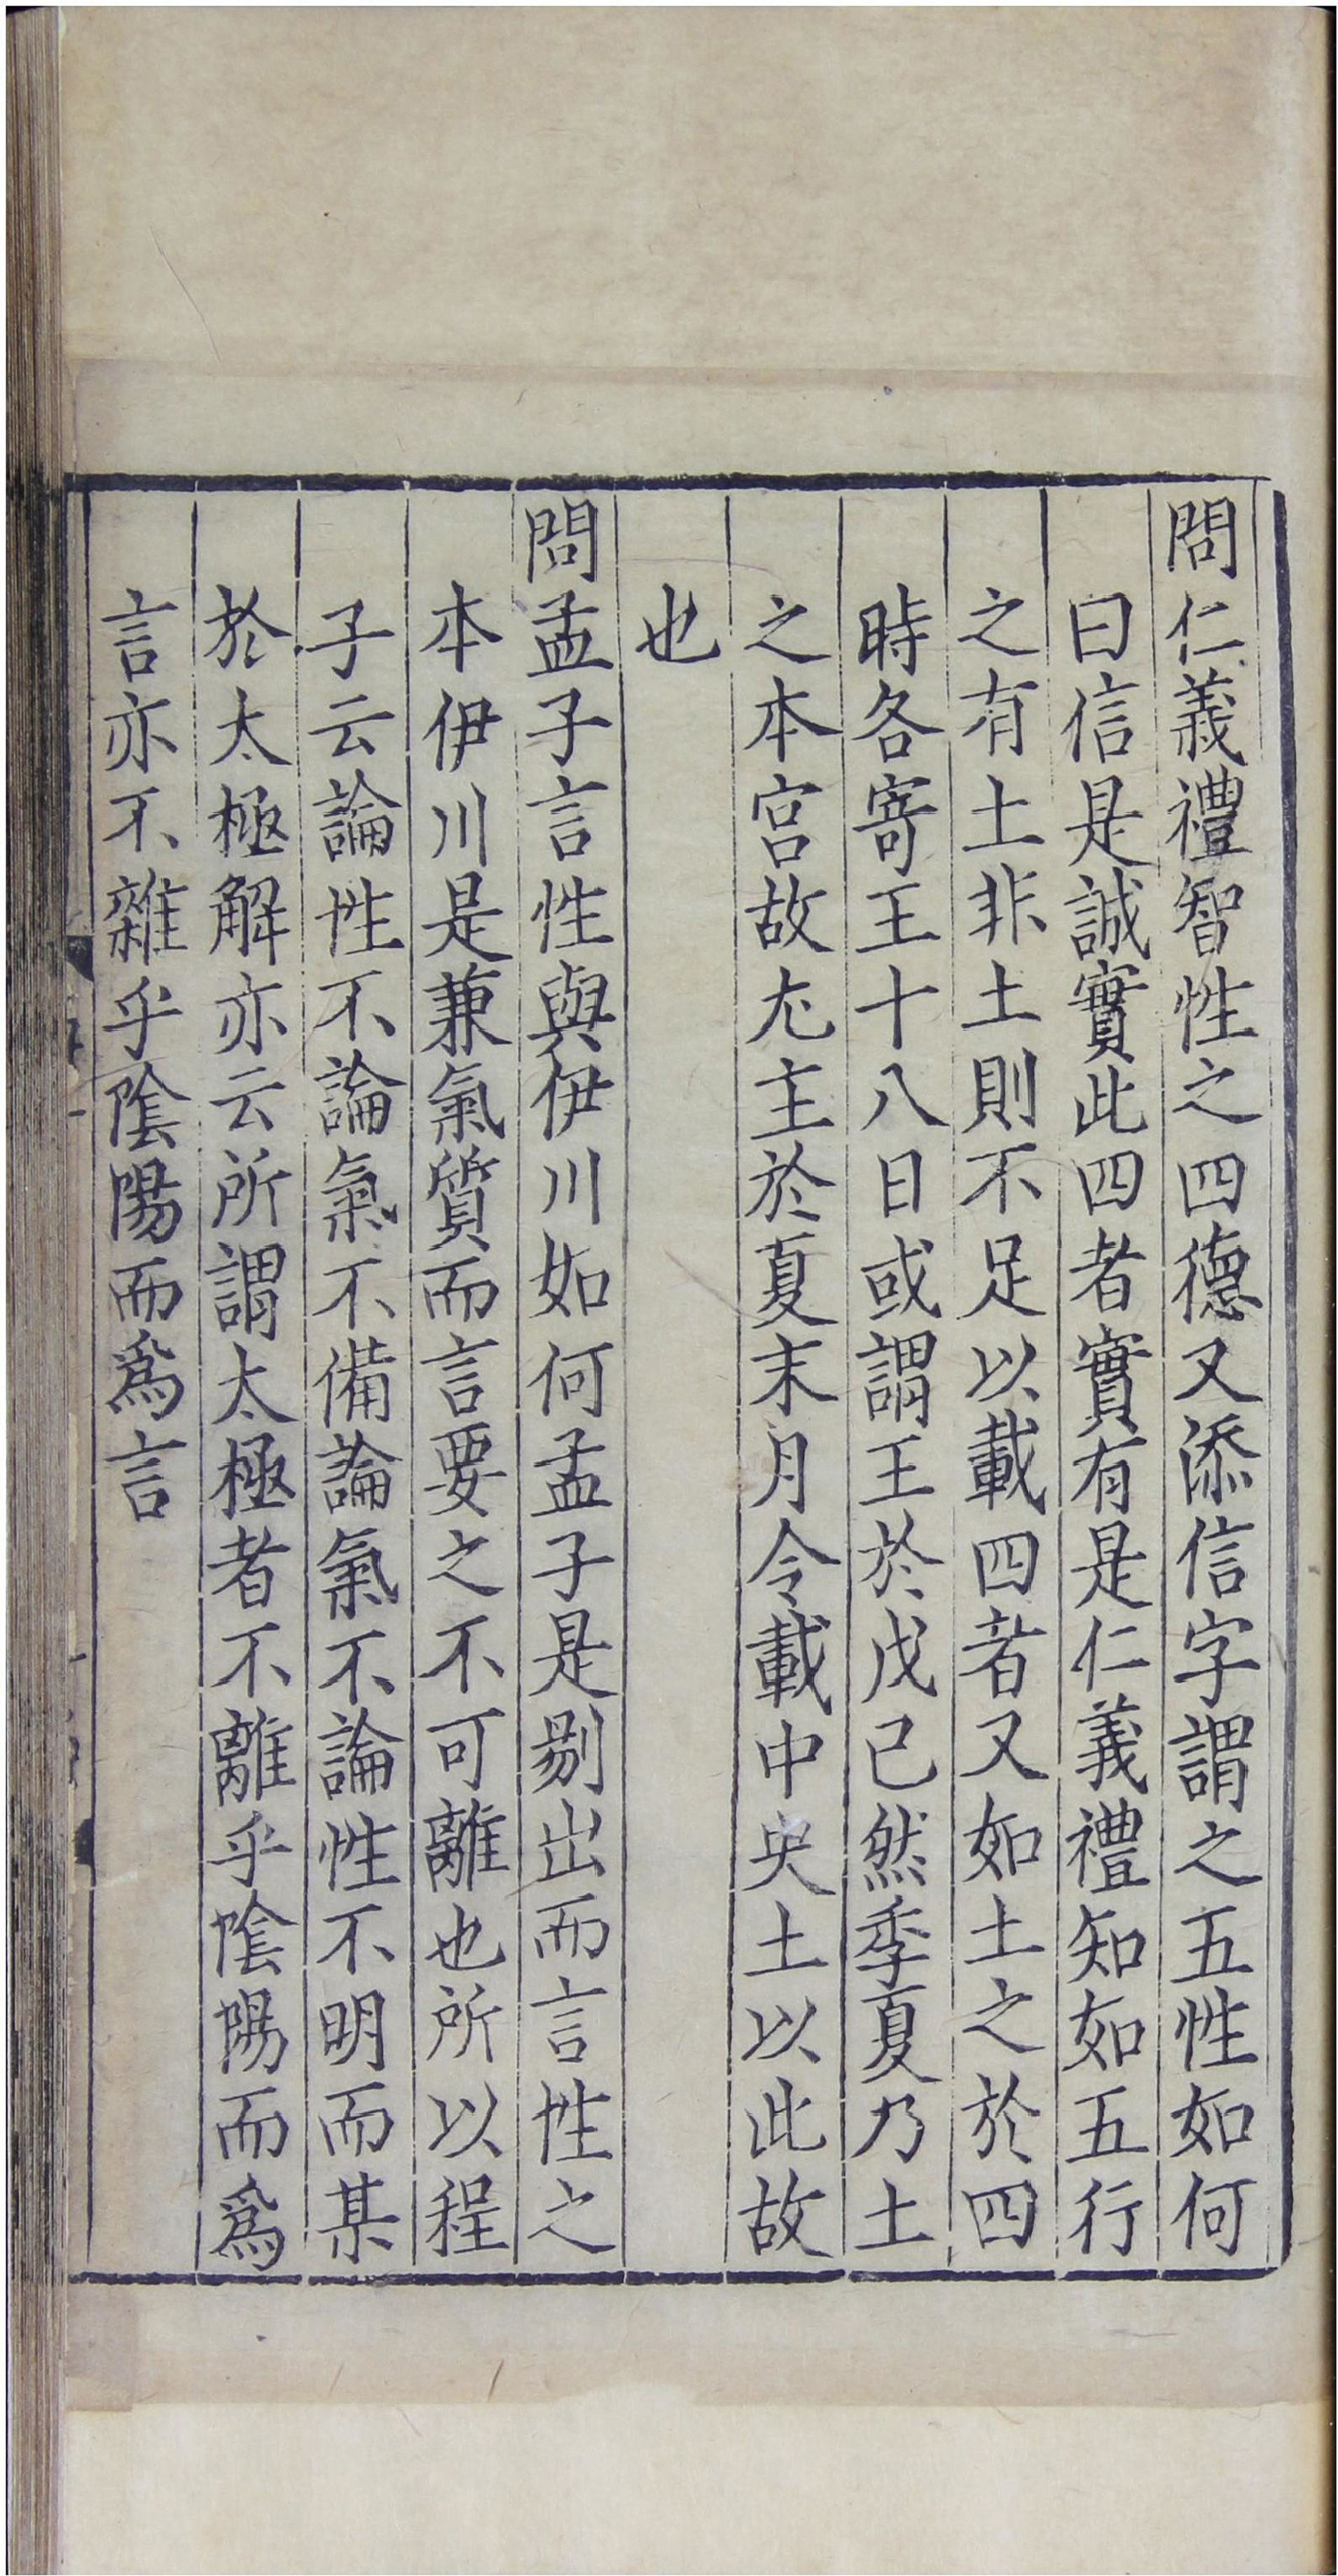 問仁義禮智性之四德又添信字謂之五性如何
曰信是誠實此四者實有是仁義禮知如五行
之有土非土則不足以載四者又如土之於四
時各寄王十八日或謂王於戊己然季夏乃土
之本宮故尤主於夏末月令載中央土以此故
也
問孟子言性與伊川如何孟子是剔出而言性之
本伊川是兼氣質而言要之不可離也所以程
子云論性不論氣不備論氣不論性不明而某
於太極解亦云所謂太極者不離乎陰陽而爲
言亦不雜乎陰陽而爲言